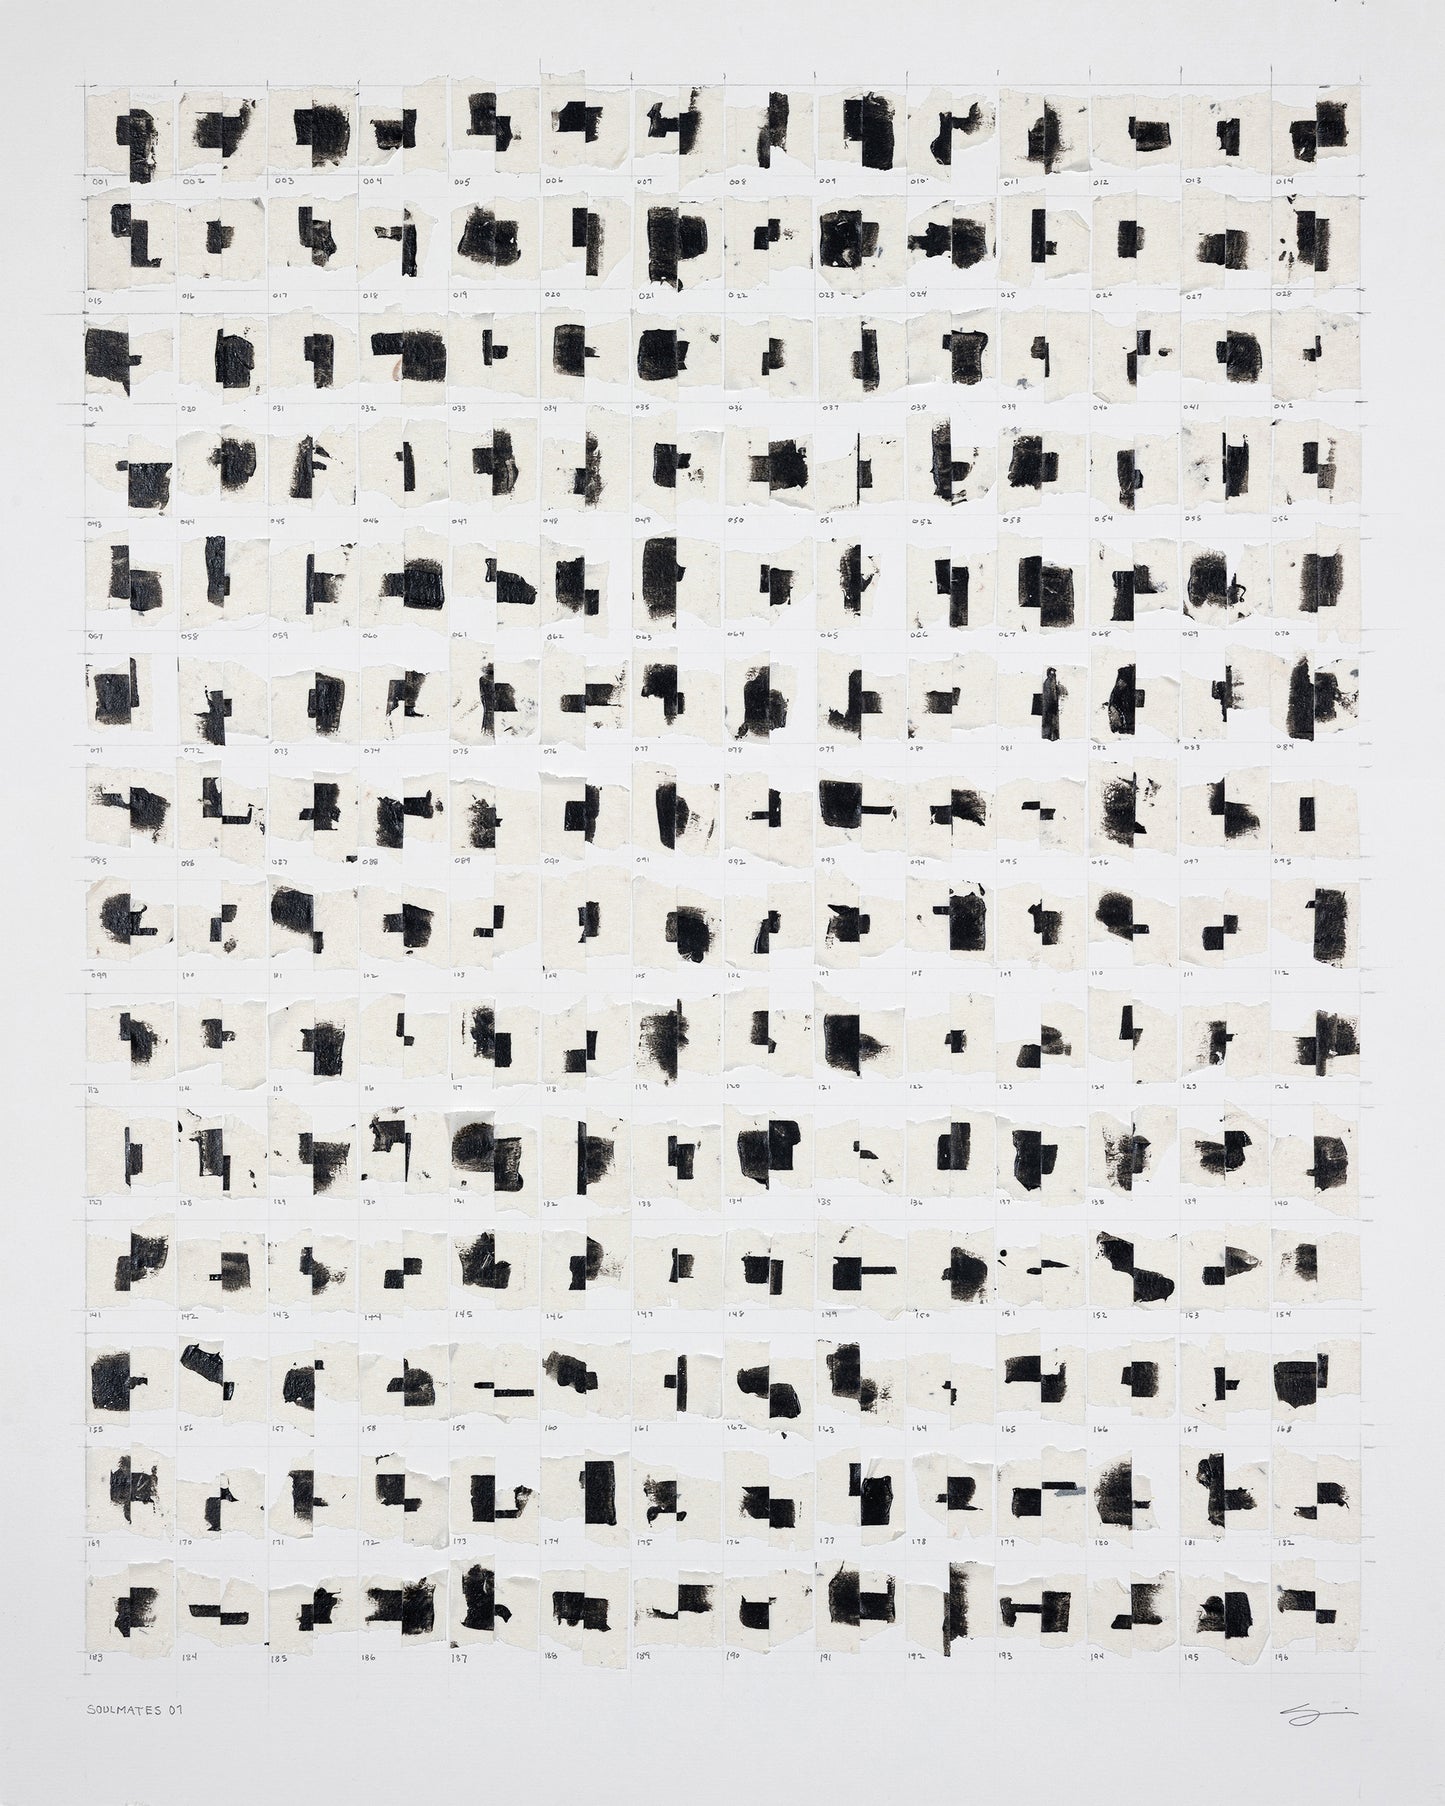 001 002 003 004 005 006 007 008 009 010 011 012 013 014
015 016 017 018 019 020 021 022 023 024 025 026 027 028
029 030 031 032 033 034 035 036 037 038 039 040 041 042
043 044 045 046 047 048 049 050 051 052 053 054 055 056
057 058 059 060 061 062 063 064 065 066 067 068 069 070
071 072 073 074 075 076 077 078 079 080 081 082 083 084
085 086 087 088 089 090 091 092 093 094 095 096 097 095
099 100 101 102 103 104 105 106 107 108 109 110 111 112
113 114 115 116 117 118 119 120 121 122 123 124 125 126
127 128 129 130 131 132 133 134 135 136 137 138 139 140
141 142 143 144 145 146 147 148 149 150 151 152 153 154
155 156 157 158 159 160 161 162 163 164 165 166 167 168
169 170 171 172 173 174 175 176 177 178 179 180 181 182
183 184 185 186 187 188 189 190 191 192 193 194 195 196
SOULMATES 01